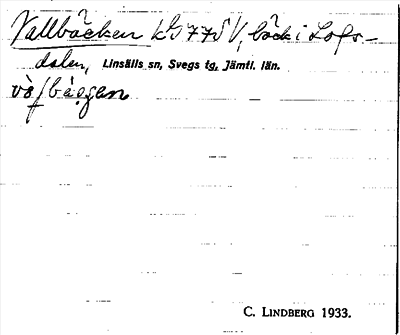 Vallbäcken kbl 77 S V, bäck i Lofs-
dalen, Linsälls sn, Svegs tg, Jämtl. län.
C. LINDBERG 1933.